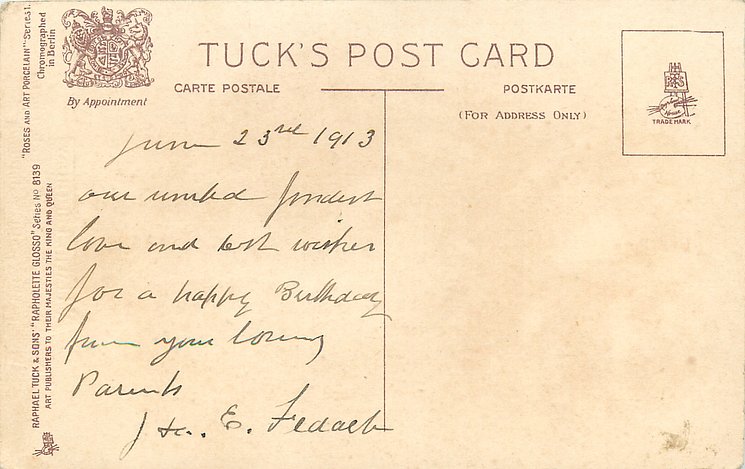 TUCK'S POST CARD
CARTE POSTALE
POSTKARTE
(FOR ADDRESS ONLY)
By Appointment
TRADE MARK
"ROSES AND ART PORCELAIN" Series I.
Chromographed
in Berlin
RAPHAEL TUCK & SONS' "RAPHOLETTE GLOSSO" Series No 8139
ART PUBLISHERS TO THEIR MAJESTIES THE KING AND QUEEN
June 23rd 1913
our united fondest
love and best wishes
for a happy Birthday
from your loving
Parents
E.